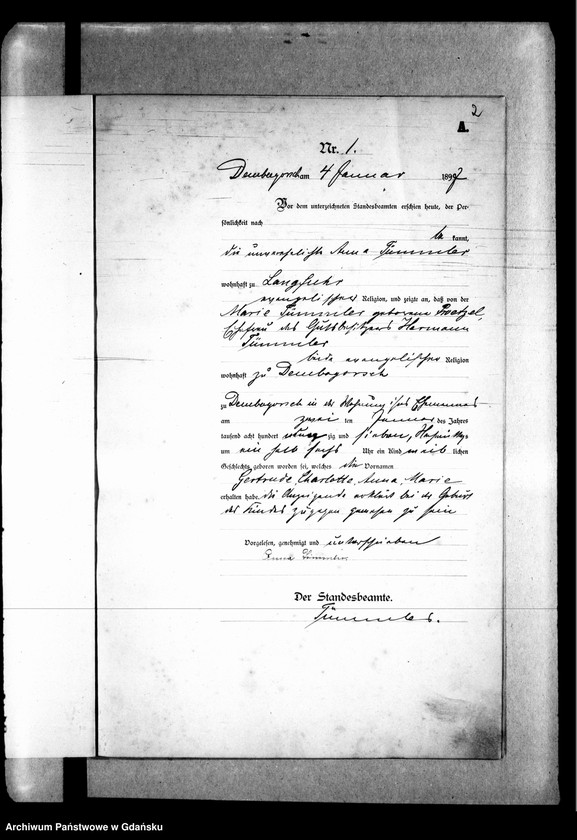 2
A.
Nr. 1.
Dembogorsch am 4 Januar 1897
Vor dem unterzeichneten Standesbeamten erschien heute, der Per-
sönlichkeit nach
be kannt,
die unverehelichte Anna Tümmler
wohnhaft zu Langfuhr
evangelischer Religion, und zeigte an, daß von der
Marie Tümmler geborene Praetzel,
Ehefrau des Gutsbesitzers Hermann
Tümmler
beide evangelischer Religion
wohnhaft zu Dembogorsch
zu Dembogorsch in der Wohnung ihres Ehemannes
am zwei ten Januar des Jahres
tausend acht hundert neun zig und sieben, Nachmittags
um ein halb sechs Uhr ein Kind weib lichen
Geschlechts geboren worden sei, welches die Vornamen
Gertrude, Charlotte, Anna, Marie
erhalten habe. Die Anzeigende erklärt bei der Geburt
des Kindes zugegen gewesen zu sein
Vorgelesen, genehmigt und unterschrieben
Anna Tümmler
Der Standesbeamte.
Tümmler.
Archiwum Państwowe w Gdańsku